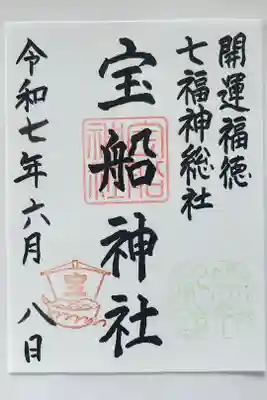 開運福徳
七福神総社
宝船神社
令和七年六月八日
宝